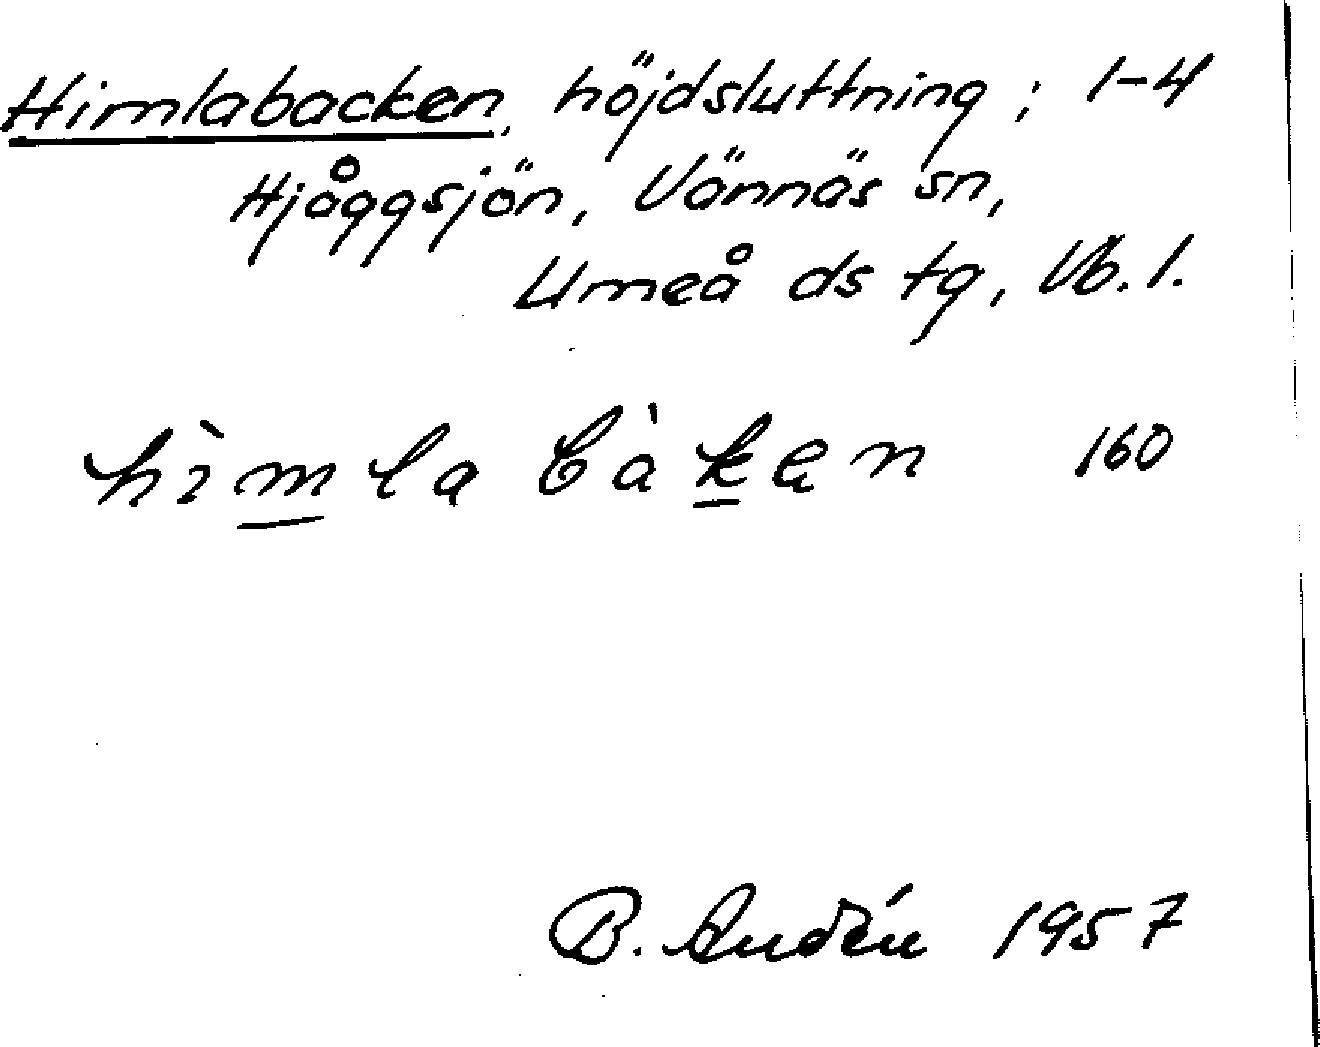 Himlabacken, höjdsluttning; 1-4
Hjåggsjön, Vännäs sn,
Umeå ds tg, Vb. l.
hìmla bàken 160
B. Audén 1957